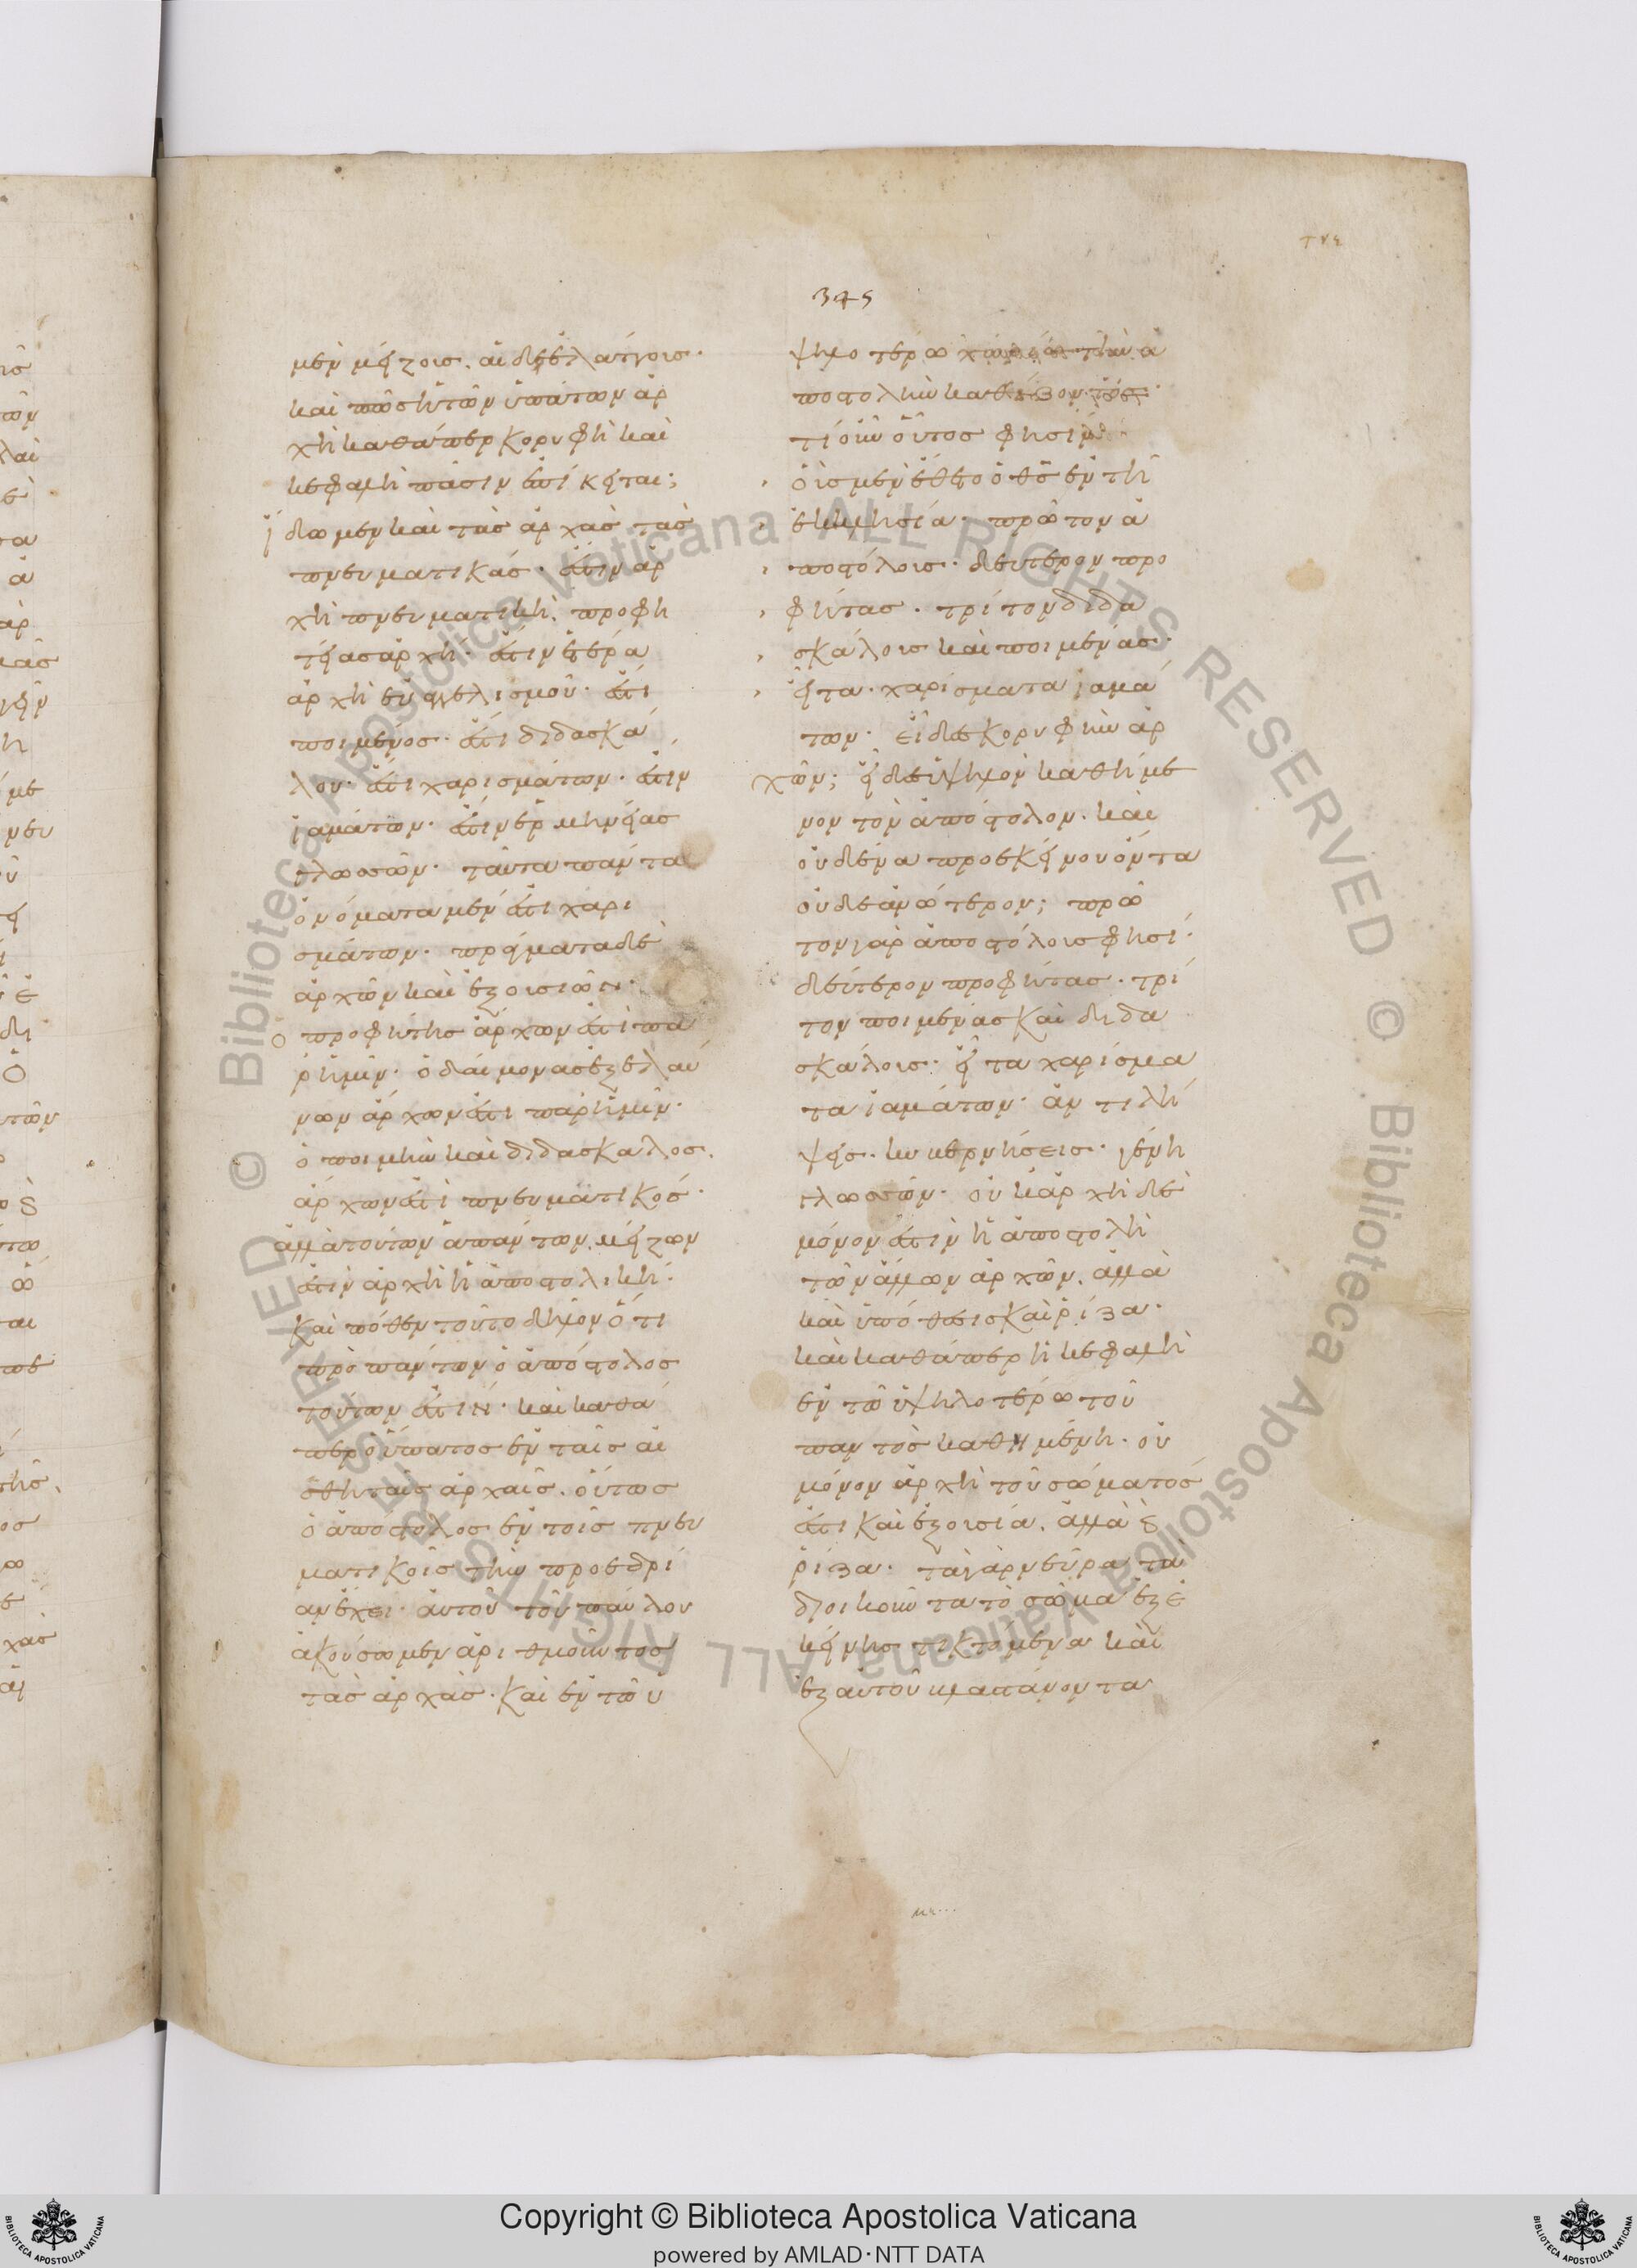 345
μὲν μείζους. αἱ δὲ ἐλάττους·
καὶ πῶς ἡ τῶν ὑπάτων ἀρ
χὴ καθάπερ κορυφὴ καὶ
κεφαλὴ πᾶσιν ἐπίκειται;
ἴδωμεν καὶ τὰς ἀρχὰς τὰς
πνευματικάς· ἔστιν ἀρ
χὴ πνευματικὴ. προφη
τείας ἀρχή· ἔστιν ἑτέρα
ἀρχὴ εὐαγγελισμοῦ· ἔστι
ποιμένος· ἔστι διδασκά
λου· ἔστι χαρισμάτων· ἔστιν
ἰαμάτων· ἔστιν ἑρμηνείας
γλωσσῶν· ταῦτα πάντα
ὀνόματα μέν ἐστι χαρι
σμάτων· πράγματα δὲ
ἀρχῶν καὶ ἐξουσιῶν·
ὁ προφήτης ἄρχων ἐστὶ πα
ρ' ἡμῖν· ὁ δαίμονας ἐξελαύ
νων ἄρχων ἐστι παρ' ἡμῖν·
ὁ ποιμὴν καὶ διδάσκαλος.
ἄρχων ἐστὶ πνευματικός·
ἀλλὰ τούτων ἁπάντων μείζων
ἐστὶν ἀρχὴ ἡ ἀποστολική·
καὶ πόθεν τοῦτο δῆλον ὅτι
πρὸ πάντων ὁ ἀπόστολος
τούτων ἐστίν· καὶ καθά
περ ὁ ὕπατος ἐν ταῖς αἰ
σθηταῖς ἀρχαῖς. οὕτως
ὁ ἀπόστολος ἐν τοῖς πνευ
ματικοῖς τὴν προεδρί
αν ἔχει· αὐτοῦ τοῦ παύλου
ἀκούσωμεν ἀριθμοῦντος
τὰς ἀρχὰς· καὶ ἐν τῶ ὑ
ψηλοτέρω τὴν ἀ
ποστολὴν καθίζοντος·
τί οὖν οὗτος φησίν
οὓς μὲν ἔθετο ὁ θς ἐν τῆ
ἐκκλησία· πρῶτον ἀ
ποστόλους· δεύτερον προ
φήτας· τρίτον διδα
σκάλους καὶ ποιμένας·
εἶτα χαρίσματα ἰαμά
των· εἶδες κορυφὴν ἀρ
χῶν; εἶδες ὑψηλὸν καθήμε
νον τὸν ἀπόστολον. καὶ
οὐδένα πρὸ ἐκείνου ὄντα
οὐδὲ ἀνώτερον; πρῶ
τον γὰρ ἀποστόλους φησί·
δεύτερον προφήτας· τρί
τον ποιμένας καὶ διδα
σκάλους· εἶτα χαρίσμα
τα ἰαμάτων· ἀντιλή
ψεις· κυβερνήσεις· γένη
γλωσσῶν· οὐκ ἀρχὴ δὲ
μόνον ἐστὶν ἡ ἀποστολὴ
τῶν ἄλλων ἀρχῶν. ἀλλὰ
καὶ ὑπόθεσις καὶ ῥίζα·
καὶ καθάπερ ἡ κεφαλὴ
ἐν τῶ ὑψηλοτέρω τοῦ
παντὸς καθημένη· οὐ
μόνον ἀρχὴ τοῦ σώματός
ἐστι καὶ ἐξουσία. ἀλλὰ ϗ
ῥίζα· τὰ γὰρ νεῦρα τὰ
διοικοῦντα τὸ σῶμα ἐξ ἐ
κείνης τικτόμενα καὶ
ἐξ αὐτοῦ βλαστάνοντα
Copyright © Biblioteca Apostolica Vaticana
powered by AMLAD·NTT DATA